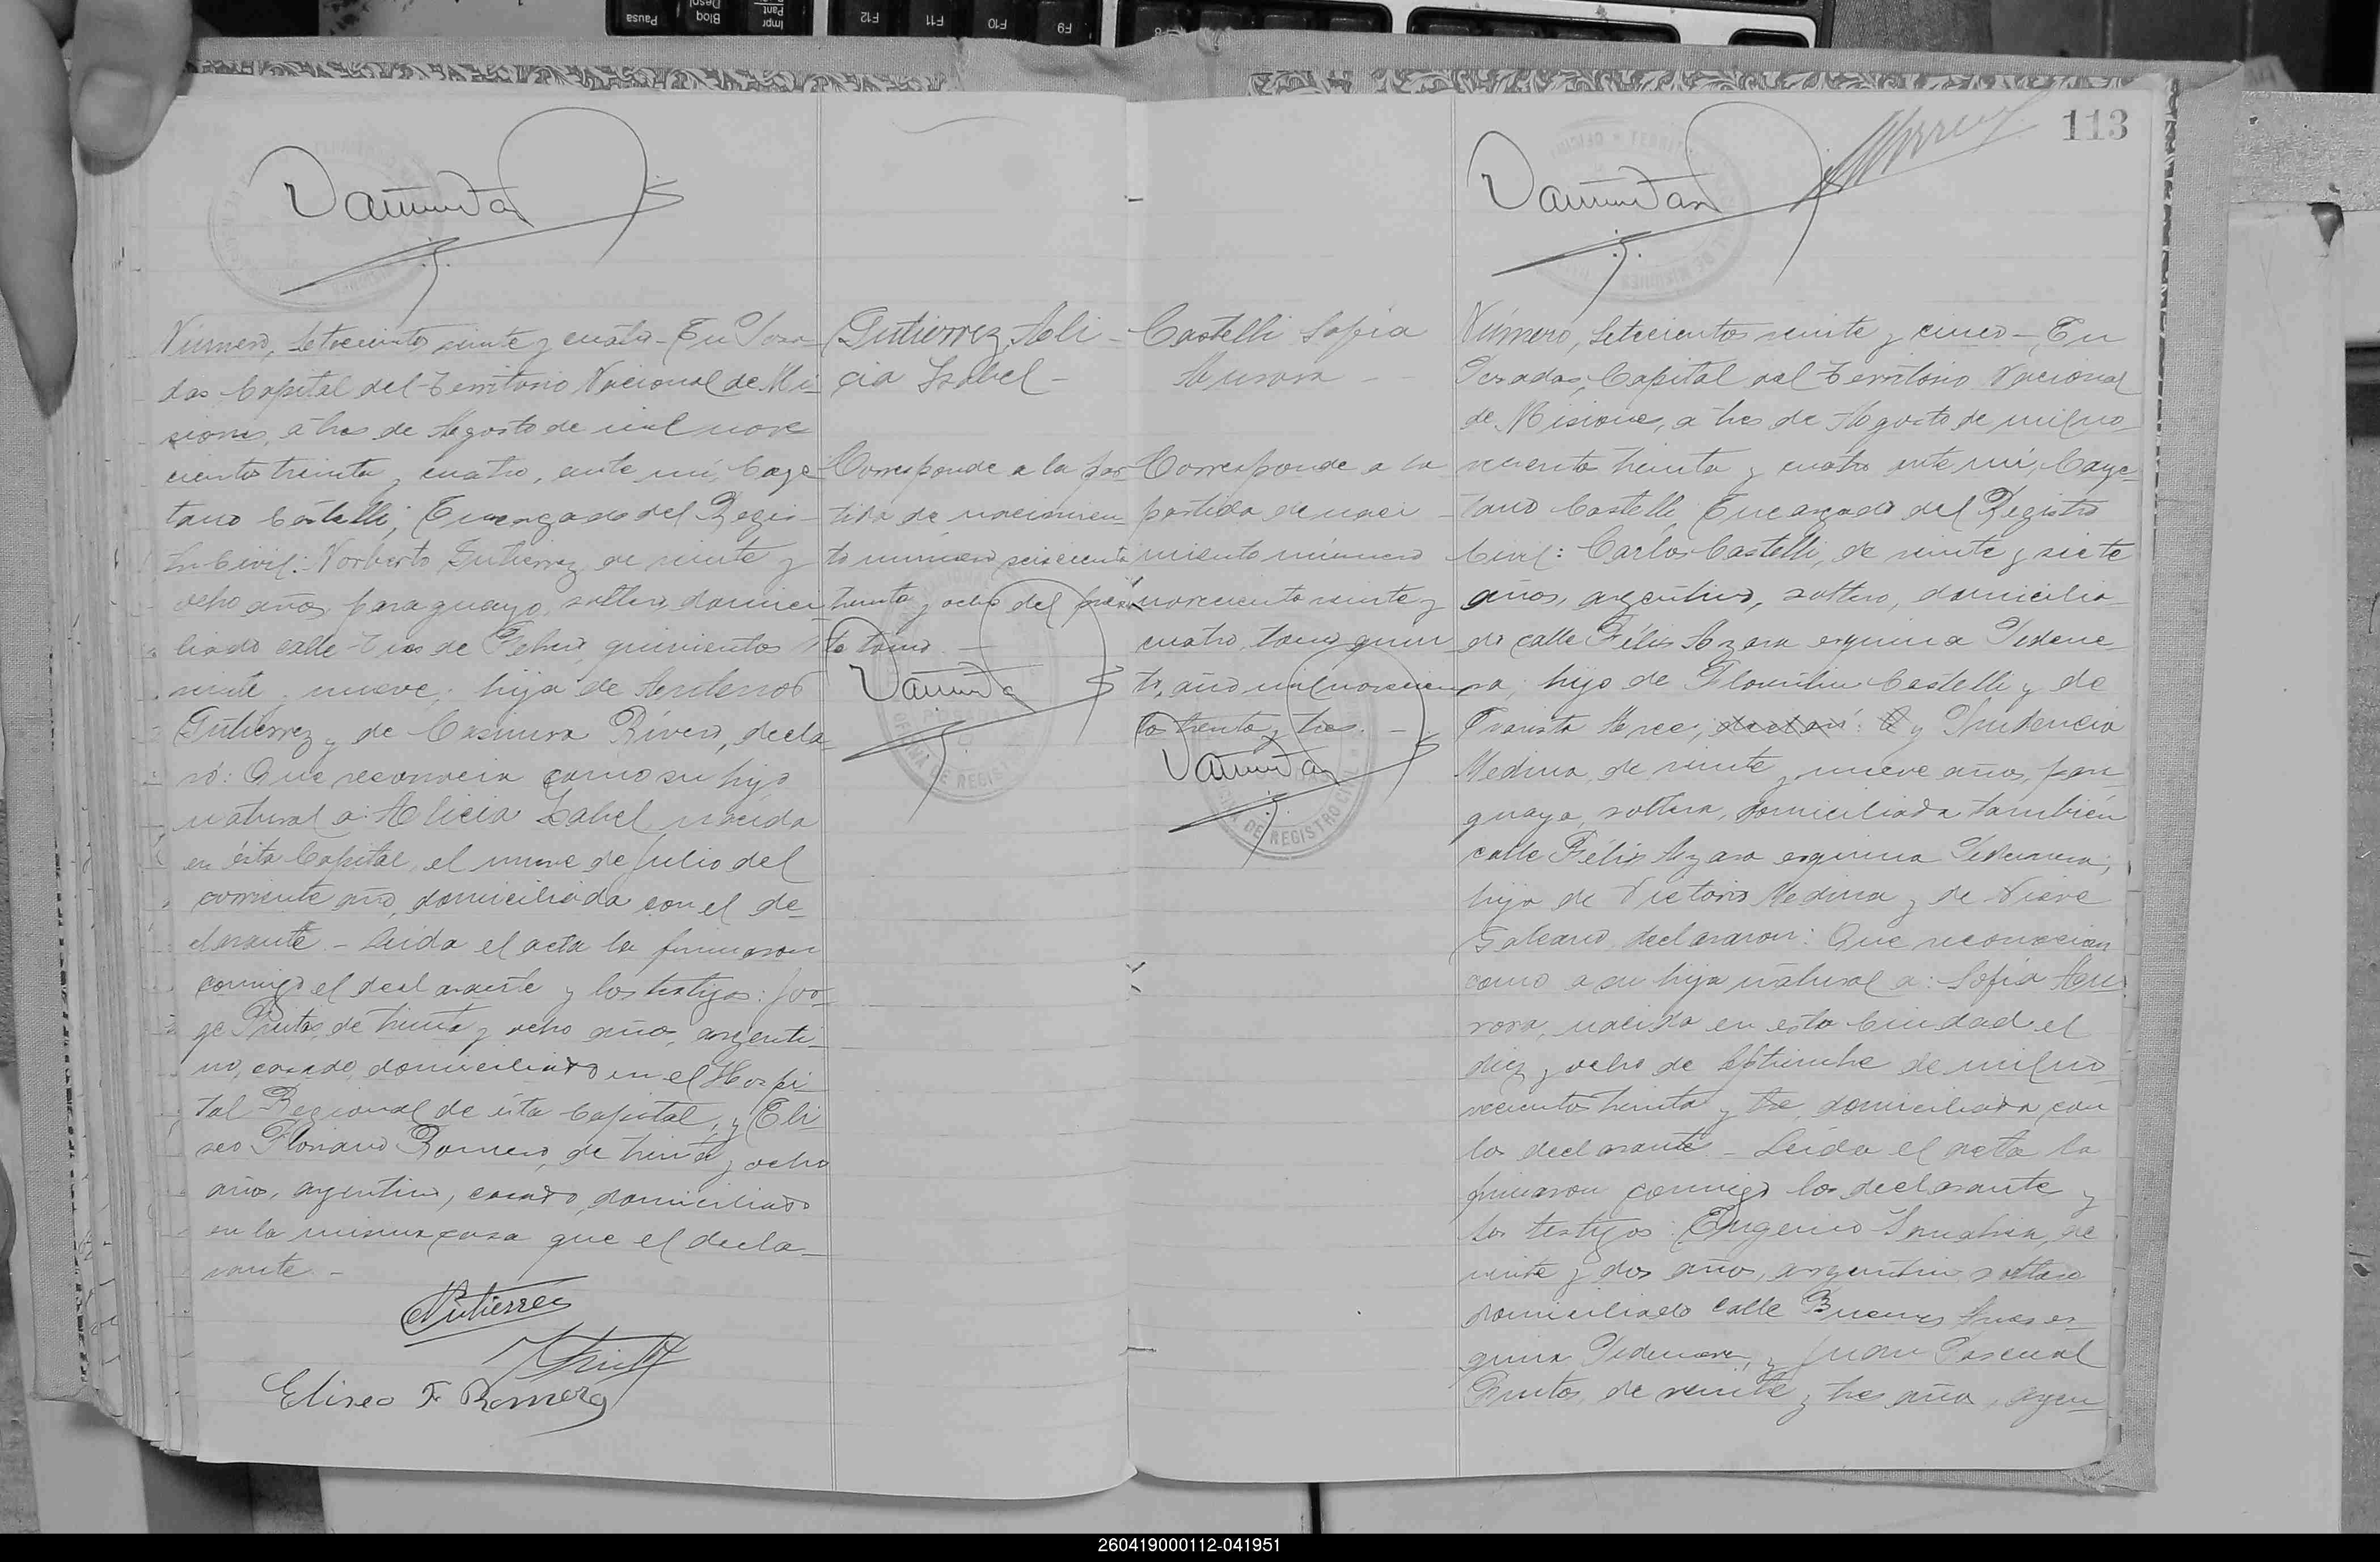 113
Número, Setecientos veinte y cuatro - En Posa-
das Capital del Territorio Nacional de Mi-
siones, a tres de Agosto de mil nove
cientos treinta y cuatro, ante mí, Caye
tano Castelli, Encargado del Regis-
tro Civil: Norberto Gutierrez, de veinte y
ocho años, paraguayo, soltero, domici-
liado calle Tres de Febrero, quinientos
veinte y nueve; hijo de Antenor
Gutierrez y de Casimira Rivero, decla-
ró: Que reconocia como su hija
natural a: Alicia Isabel, nacida
en ésta Capital, el nueve de Julio del
corriente año, domiciliada con el de-
clarante. - Leida el acta la firmaron
conmigo el declarante y los testigos: Jor-
ge Frutos, de treinta y ocho años, argenti-
no, casado, domiciliado en el Hospi
tal Regional de ésta Capital, y Eli-
seo Floriano Romero, de treinta y ocho
años, argentino, casado, domiciliado
en la misma casa que el decla-
rante. -
NGutierrez
Eliseo F Romero
Gutierrez, Ali-
cia Isabel -
Corresponde a la par
tida de nacimien
to número seiscientos
treinta y ocho del presen
te tomo. -
Castelli Sofía
Aurora - -
Corresponde a la
partida de naci-
miento número
novecientos veinte y
cuatro, tomo quin
to, año mil novecien
tos treinta y tres. -
Número, Setecientos veinte y cinco - En
Posadas, Capital del Territorio Nacional
de Misiones, a tres de Agosto de mil no-
vecientos treinta y cuatro ante mí, Caye-
tano Castelli Encargado del Registro
Civil: Carlos Castelli, de veinte y siete
años, argentino, soltero, domicilia-
do calle Félix Azara esquina Pederne
ra; hijo de Florentin Castelli y de
Transita Arce; declaró: Q y Prudencia
Medina, de veinte y nueve años, para
guaya, soltera, domiciliada también
calle Félix Azara esquina Pedernera;
hija de Victorio Medina y de Nieve
Galeano, declararon: Que reconocian
como a su hija natural a: Sofía Au
rora, nacida en esta Ciudad el
diez y ocho de Septiembre de mil no-
vecientos treinta y tre, domiciliada con
los declarante. - Leida el acta la
firmaron conmigo los declarante y
los testigos: Eugenio Sanabria, de
veinte y dos años, argentino soltero
domiciliado calle Buenos Aires es-
quina Pedernera, y Juan Pascual
Frutos, de veinte y tres años, argen-
OFICINA DE REGISTRO CIVIL
260419000112-041951